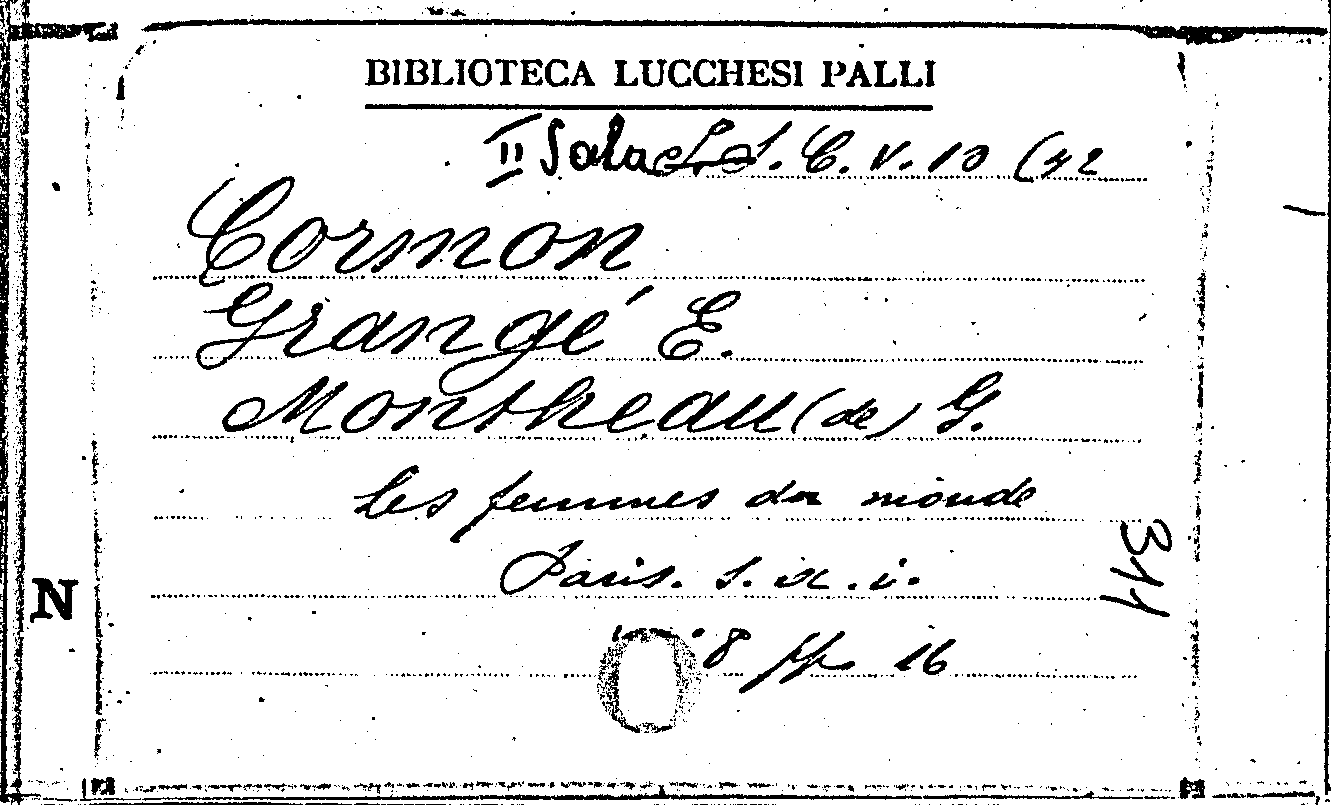 BIBLIOTECA LUCCHESI PALLI
II Sala L. C. V. 10 (42
Cormon
Grangé E.
Montheau (de) G.
Les femmes du monde
Paris. s. a. i.
8 pp. 16
311
N